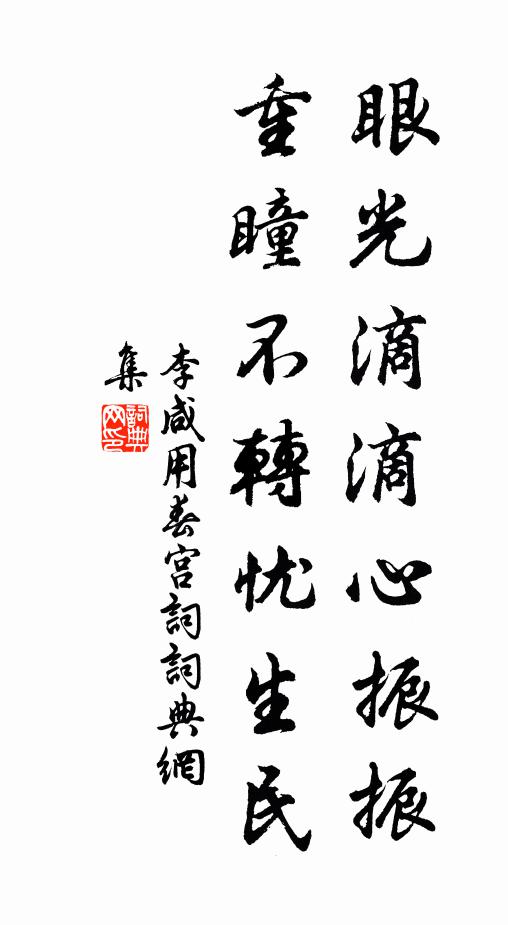 眼光滴滴心振振
重瞳不轉忧生民
李咸用春宮詞詞典網
集
詞典
网印